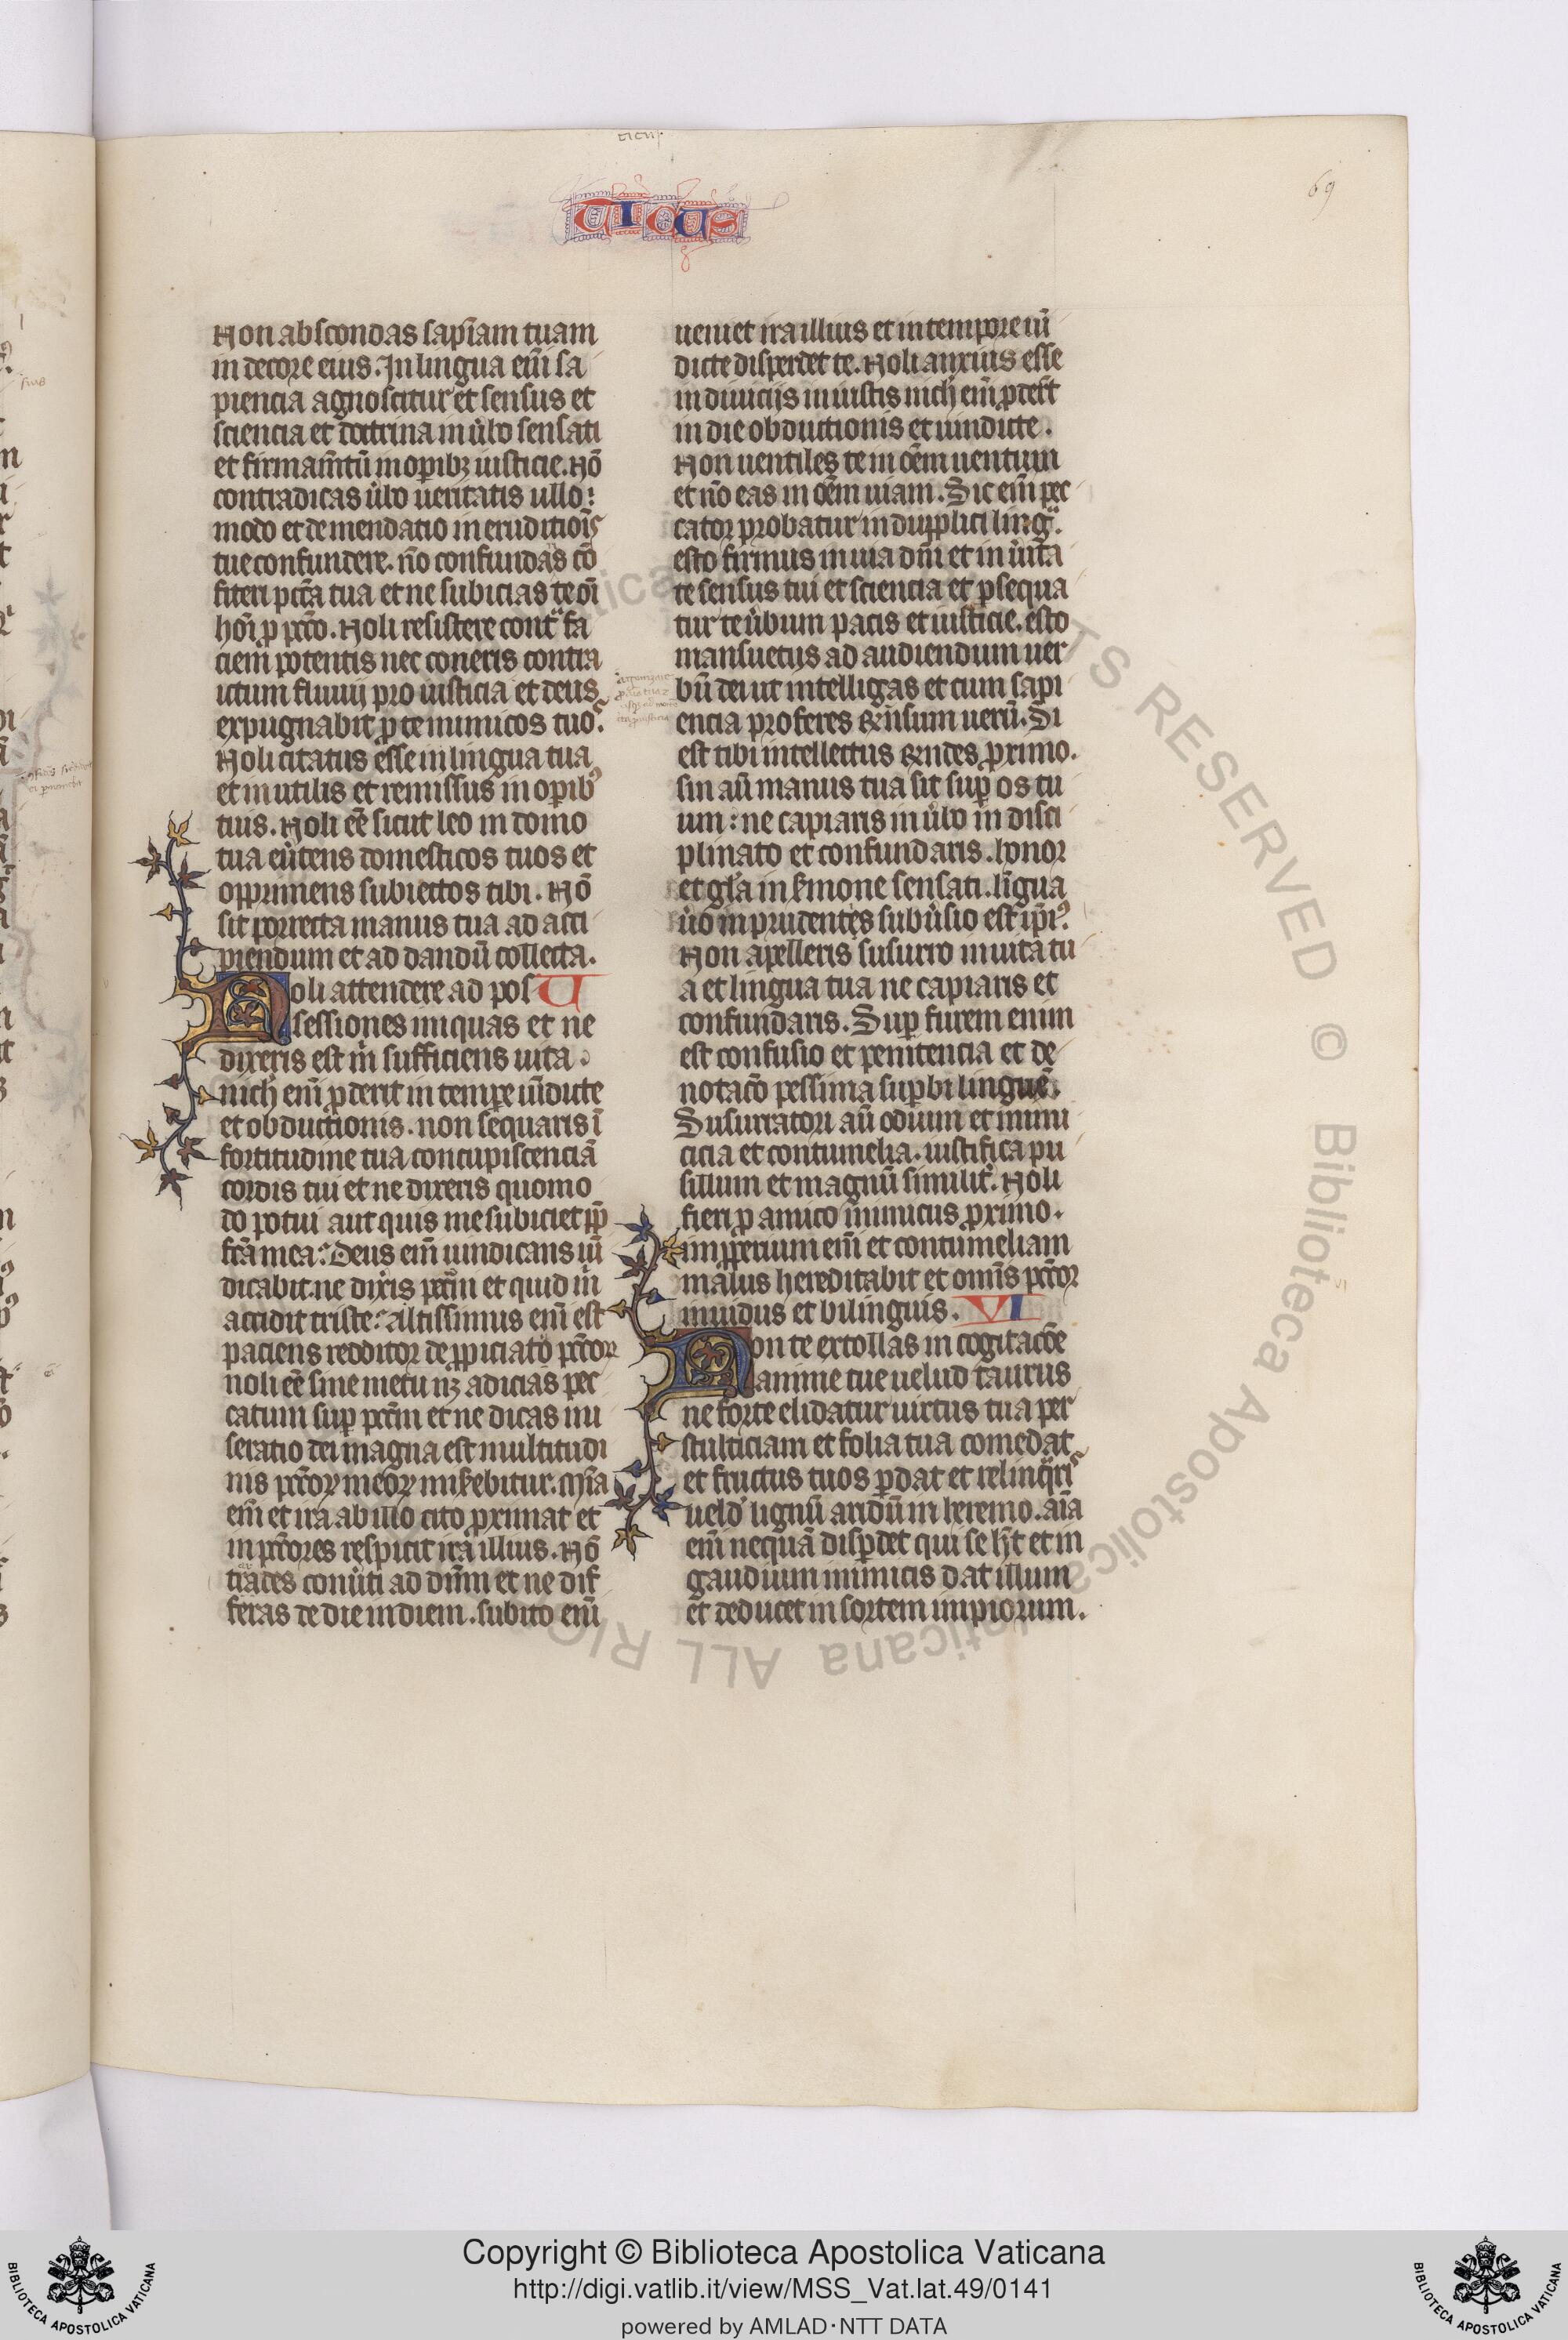 ticus
TICUS
69
Non abscondas sapīam tuam
in decore eius. In lingua eīm sa
piencia agnoscitur et sensus et
sciencia et doctrina in ūbo sensati
et firmam̄tū in oꝑibꝫ iusticie. Nō
contradicas ūbo ueritatis ullo
modo et de mendatio in eruditiōīs
tue confundere. nō confundas cō
fiteri pctā tua et ne subicias te oī
hōī ꝓ pctō. Noli resistere contᵃ fa
ciem potentis nec coneris contra
ictum fluuij pro iusticia et deus
expugnabit ꝓ te inimicos tuos.
Noli citatus esse in lingua tua
et inutilis et remissus in oꝑibꝰ
tuis. Noli eē sicut leo in domo
tua eūtens domesticos tuos et
opprimens subiectos tibi. Nō
sit porrecta manus tua ad acci
piendum et ad dandū collecta.
Noli attendere ad pos U
sessiones iniquas et ne
dixeris est m̄ sufficiens uita.
nich̄ em̄ ꝓderit in tempe uīdicte
et obductionis. non sequaris ī
fortitudine tua concupiscenciā
cordis tui et ne dixeris quomo
do potui aut quis me subiciet ꝓp̄
fctā mea: Deus em̄ uindicans uī
dicabit. ne dix̄is peccāui et quid m̄
accidit triste: Altissimus em̄ est
paciens redditor de ꝓpiciato pctōꝝ
noli eē sine metu nꝫ adicias pec
catum suꝑ pctm̄ et ne dicas mi
seratio dei magna est multitudi
nis pctōꝝ meoꝝ mis̄ebitur. Mīa
em̄ et ira ab illo cito ꝓximat et
in pctōres respicit ira illius. Nō
trades conūti ad dn̄m et ne dif
feras de die in diem. subito em̄
ueniet ira illius et in tempore uī
dicte disperdet te. Noli anxius esse
in diuicijs iniustis nich̄ em̄ ꝓdest
in die obductionis et uindicte.
Non uentiles te in ōem uentum
et nō eas in ōem uiam. Sic em̄ pec
cator probatur in dupplici lingᵃ.
esto firmus in uia dn̄i et in ūita
te sensus tui et sciencia et ꝓsequa
tur te ūbum pacis et iusticie. esto
mansuetus ad audiendum uer
bū dei ut intelligas et cum sapi
encia proferes &n̄sum uerū. Si
est tibi intellectus &ndes ꝓximo.
sin aū manus tua sit suꝑ os tu
um: ne capiaris in ūbo in disci
plinato et confundaris. honor
et glā in s̄mone sensati. lingua
ūo inprudentes subūsio est ip̄iꝰ
Non apelleris susurro in uita tu
a et lingua tua ne capiaris et
confundaris. Suꝑ furem enim
est confusio et penitencia et de
notacō pessima suꝑ bilinguē.
Susurratori aū odium et inimi
cicia et contumelia. iustifica pu
sillum et magnū similit̄. Noli
fieri ꝓ amico inimicus ꝓximo.
impperium em̄ et contumeliam
malus hereditabit et omīs pctōr
inuidus et bilinguis. VI
Non te extollas in cogitacōe
anime tue uelud taurus
ne forte elidatur uirtus tua per
stulticiam et folia tua comedat
et fructus tuos ꝑdat et relinqᵃris
ueld̄ lignū aridū in heremo. aīa
em̄ nequā disꝑdet qui se h̄t et in
gaudium inimicis dat illum
et deducet in sortem impiorum.
Copyright © Biblioteca Apostolica Vaticana
http://digi.vatlib.it/view/MSS_Vat.lat.49/0141
powered by AMLAD·NTT DATA
BIBLIOTECA APOSTOLICA VATICANA
BIBLIOTECA APOSTOLICA VATICANA